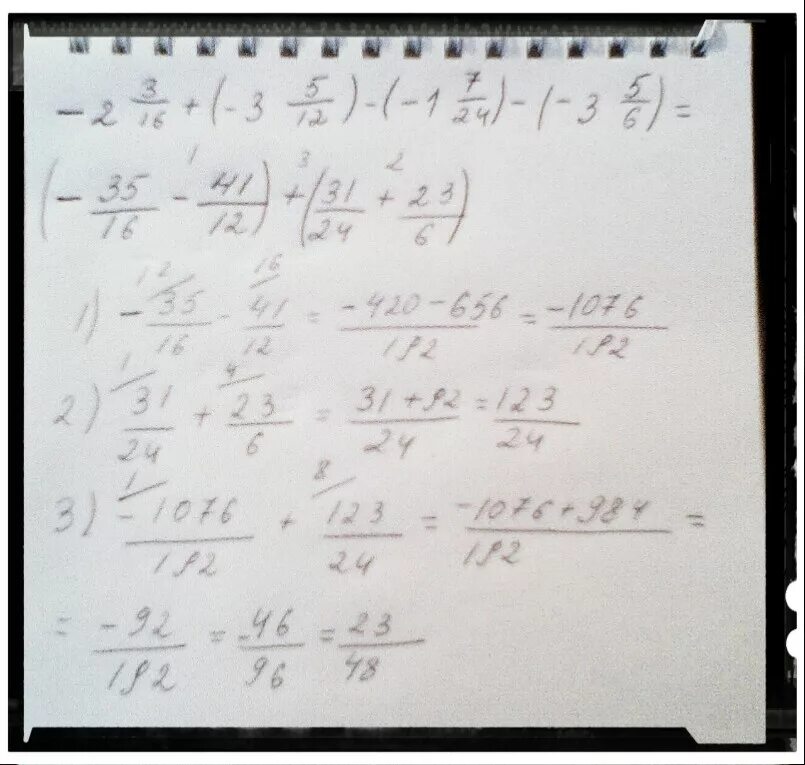 - 2 3/16 + (- 3 5/12) - (- 1 7/24) - (- 3 5/6) =
(- 35/16 -¹ 41/12) +³ (31/24 +² 23/6)
1) - 35/16 ¹² - 41/12 ¹⁶ = -420 - 656/192 = -1076/192
2) 31/24 ¹ + 23/6 ⁴ = 31 + 92/24 = 123/24
3) -1076/192 ¹ + 123/24 ⁸ = -1076 + 984/192 =
= -92/192 = -46/96 = 23/48